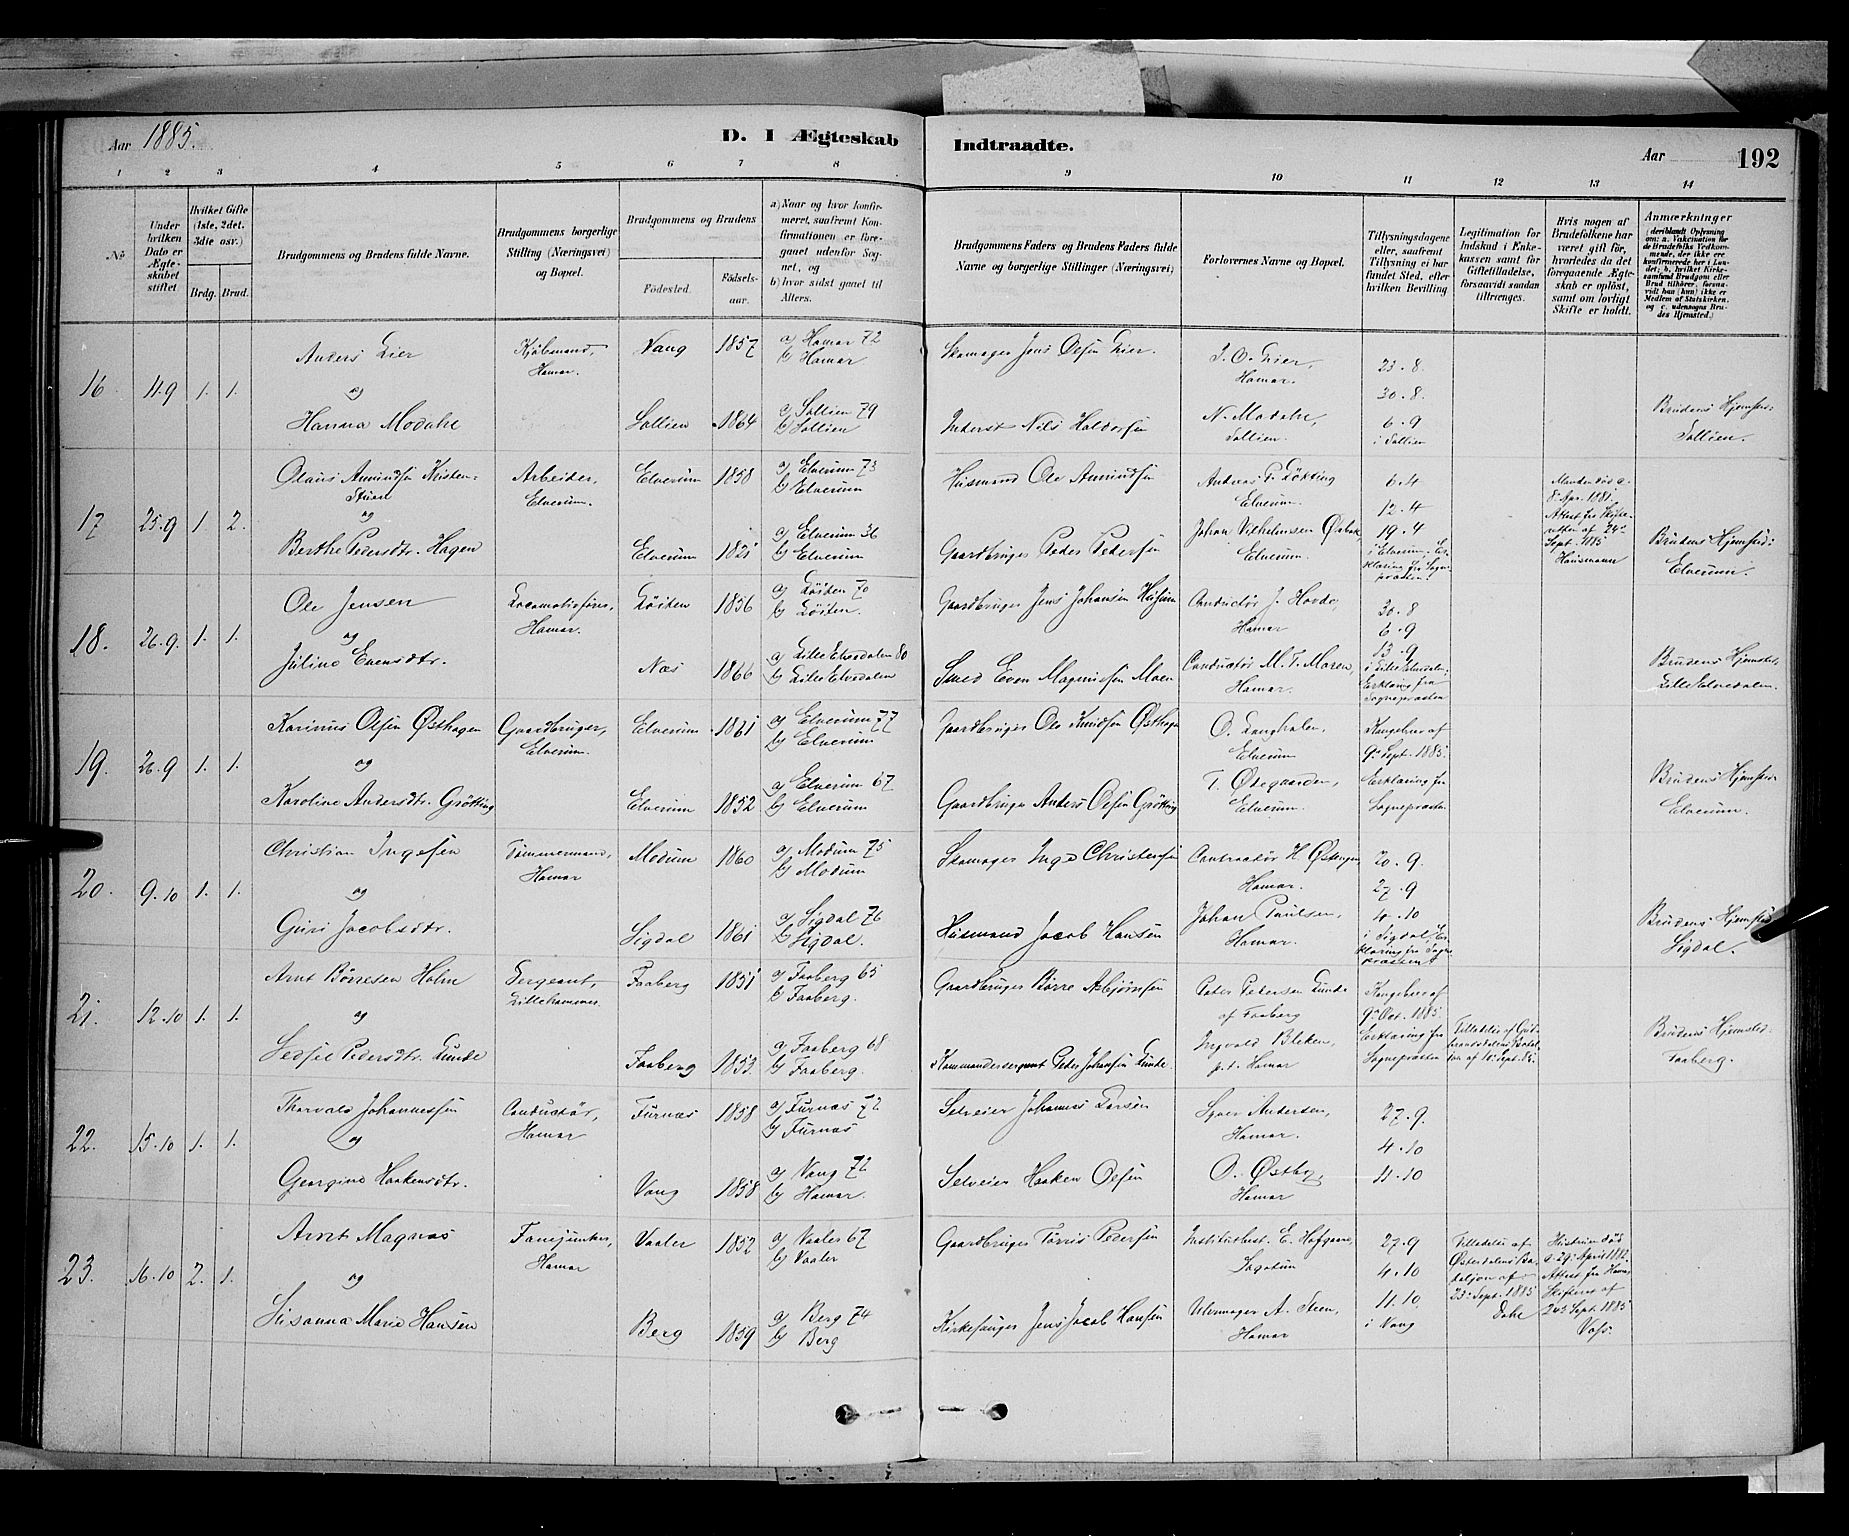 Aar 1885.
D. I Ægteskab Indtraadte.
Aar 192
1 2 3 4 5 6 7 8 9 10 11 12 13 14
№
Under hvilken Dato er Ægteskabet stiftet.
Hvilket Gifte (1ste, 2det, 3die osv.)
Brdg. Brud.
Brudgommens og Brudens fulde Navne.
Brudgommens borgerlige Stilling (Næringsvei) og Bopæl.
Brudgommens og Brudens
Födested.
Födselsaar.
a) Naar og hvor konfirmeret, saafremt Konfirmationen er foregaaet udenfor Sognet, og
b) hvor sidst gaaet til Alters.
Brudgommens Faders og Brudens Faders fulde Navne og borgerlige Stillinger (Næringsvei)
Forlovernes Navne og Bopæl.
Tillysningsdagene eller, saafremt Tillysning ei har fundet Sted, efter hvilken Bevilling
Legitimation for Indskud i Enkekassen samt for Giftetilladelse, forsaavidt saadan tiltrænges.
Hvis nogen af Brudefolkene har været gift för, hvorledes da det foregaaende Ægteskab er oplöst, samt om lovligt Skifte er holdt.
Anmærkninger
16 4.9 1. 1.
Anders Lier
og
Hanna Modahl
Kjöbmand, Hamar.
Vang 1857
a) Hamar 72
b) Hamar
Sollien 1864
a) Sollien 79
b) Sollien
Skomager Jens Olsen Lier.
Inderst Nils Haldorsen
J. O. Lier, Hamar.
N. Modahl, Sollien.
23.8.
30.8.
6.9
i Sollien
Brudens Hjemsted: Sollien.
17 25.9 1. 2.
Olaus Amundsen Kristenstuen
og
Berthe Pedersdtr. Hagen
Arbeider, Elverum.
Elverum 1858
a) Elverum 73
b) Elverum
Elverum 1821
a) Elverum 36
b) Elverum
Husmand Ole Amundsen
Gaardbruger Peder Pedersen
Elverum.
Johan Vilhelmsen
Elverum.
6.4
12.4
19.4
i Elverum, Erklæring fra Sognepræsten.
Manden död 8. Apr. 1881. Attest fra Skifteretten af 24de Sept. 1885
Brudens Hjemsted: Elverum.
18. 26.9. 1. 1.
Ole Jensen
og
Juline Evensdtr.
Locomotivförer, Hamar.
Löiten 1856
a) Löiten 70
b) Löiten.
Næs 1866
a) Lille Elvedalen 80
b) Lille Elvedalen
Gaardbruger Jens Johansen
Smed Even Magnussen Moen
Conductör J. Hovde, Hamar
Conductör M. T. Moren, Hamar.
30.8
6.9
13.9
i Lille Elvedalen; Erklæring fra Sognepræsten
Brudens Hjemsted, Lille Elvedalen.
19. 26.9 1. 1.
Karinus Olsen Østhagen
og
Karoline Andersdtr. Grötting
Gaardbruger, Elverum.
Elverum 1861
a) Elverum 77
b) Elverum
Elverum 1852
a) Elverum 67
b) Elverum
Gaardbruger Ole Knudsen Østhagen
Gaardbruger Anders Olsen Grötting
O. Langholen, Elverum
T. Østgaarden, Elverum.
Kongebrev af 9de Sept. 1885.
Erklæring fra Sognepræsten
Brudens Hjemsted: Elverum.
20. 9.10 1. 1.
Christian Ingesen
og
Guri Jacobsdtr.
Tömmermand, Hamar
Modum 1860
a) Modum 75
b) Modum
Sigdal 1861
a) Sigdal 76
b) Sigdal.
Skomager Inge Christensen
Husmand Jacob Hansen
Hamar.
Johan Paulsen, Hamar.
20.9.
27.9
4.10
i Sigdal, Erklæring fra Sognepræsten
Brudens Hjemsted Sigdal.
21. 12.10 1. 1.
Arnt Börresen Holm
og
Sedsel Pedersdtr. Lunde
Sergeant, Lillehammer.
Faaberg 1851
a) Faaberg 65
b) Faaberg.
Faaberg 1853.
a) Faaberg 68
b) Faaberg.
Gaardbruger Börre Asbjörnsen
Kommandersergeant Peder Johansen Lunde.
Peder Pedersen Lunde af Faaberg
Ingvald Bleken, p.t. Hamar
Kongebrev af 9de Oct. 1885.
Erklæring fra Sognepræsten
Tilladelse af Gudbrandsdalens Bataljon
Brudens Hjemsted: Faaberg.
22. 15.10 1. 1.
Thorvald Johannessen
og
Georgine Haakensdtr.
Conductör, Hamar
Furnæs 1858
a) Furnæs 72
b) Furnæs
Vang 1858
a) Vang 72
b) Hamar.
Selveier Johannes Larsen
Selveier Haaken Olsen
Iver Andersen, Hamar.
O. Østby, Hamar
27.9.
4.10
11.10
23. 16.10 2. 1.
Arnt Magnæs
og
Susanna Marie Hansen
Fanejunker, Hamar
Vaaler 1852
a) Vaaler 67
b) Vaaler
Berg 1859
a) Berg 74
b) Berg
Gaardbruger Torris Pedersen
Kirkesanger Jens Jacob Hansen
Institutbest. E. Hofgaard, Sagatun
Uhrmager A. Steen, Hamar
27.9
4.10
11.10
i Vang
Tilladelse af Østerdalens Bataljon af 23. Sept. 1885 Dahl
Hustruen död 29. April 1882. Attest fra Hamar Skifteret af 24de Sept. 1885